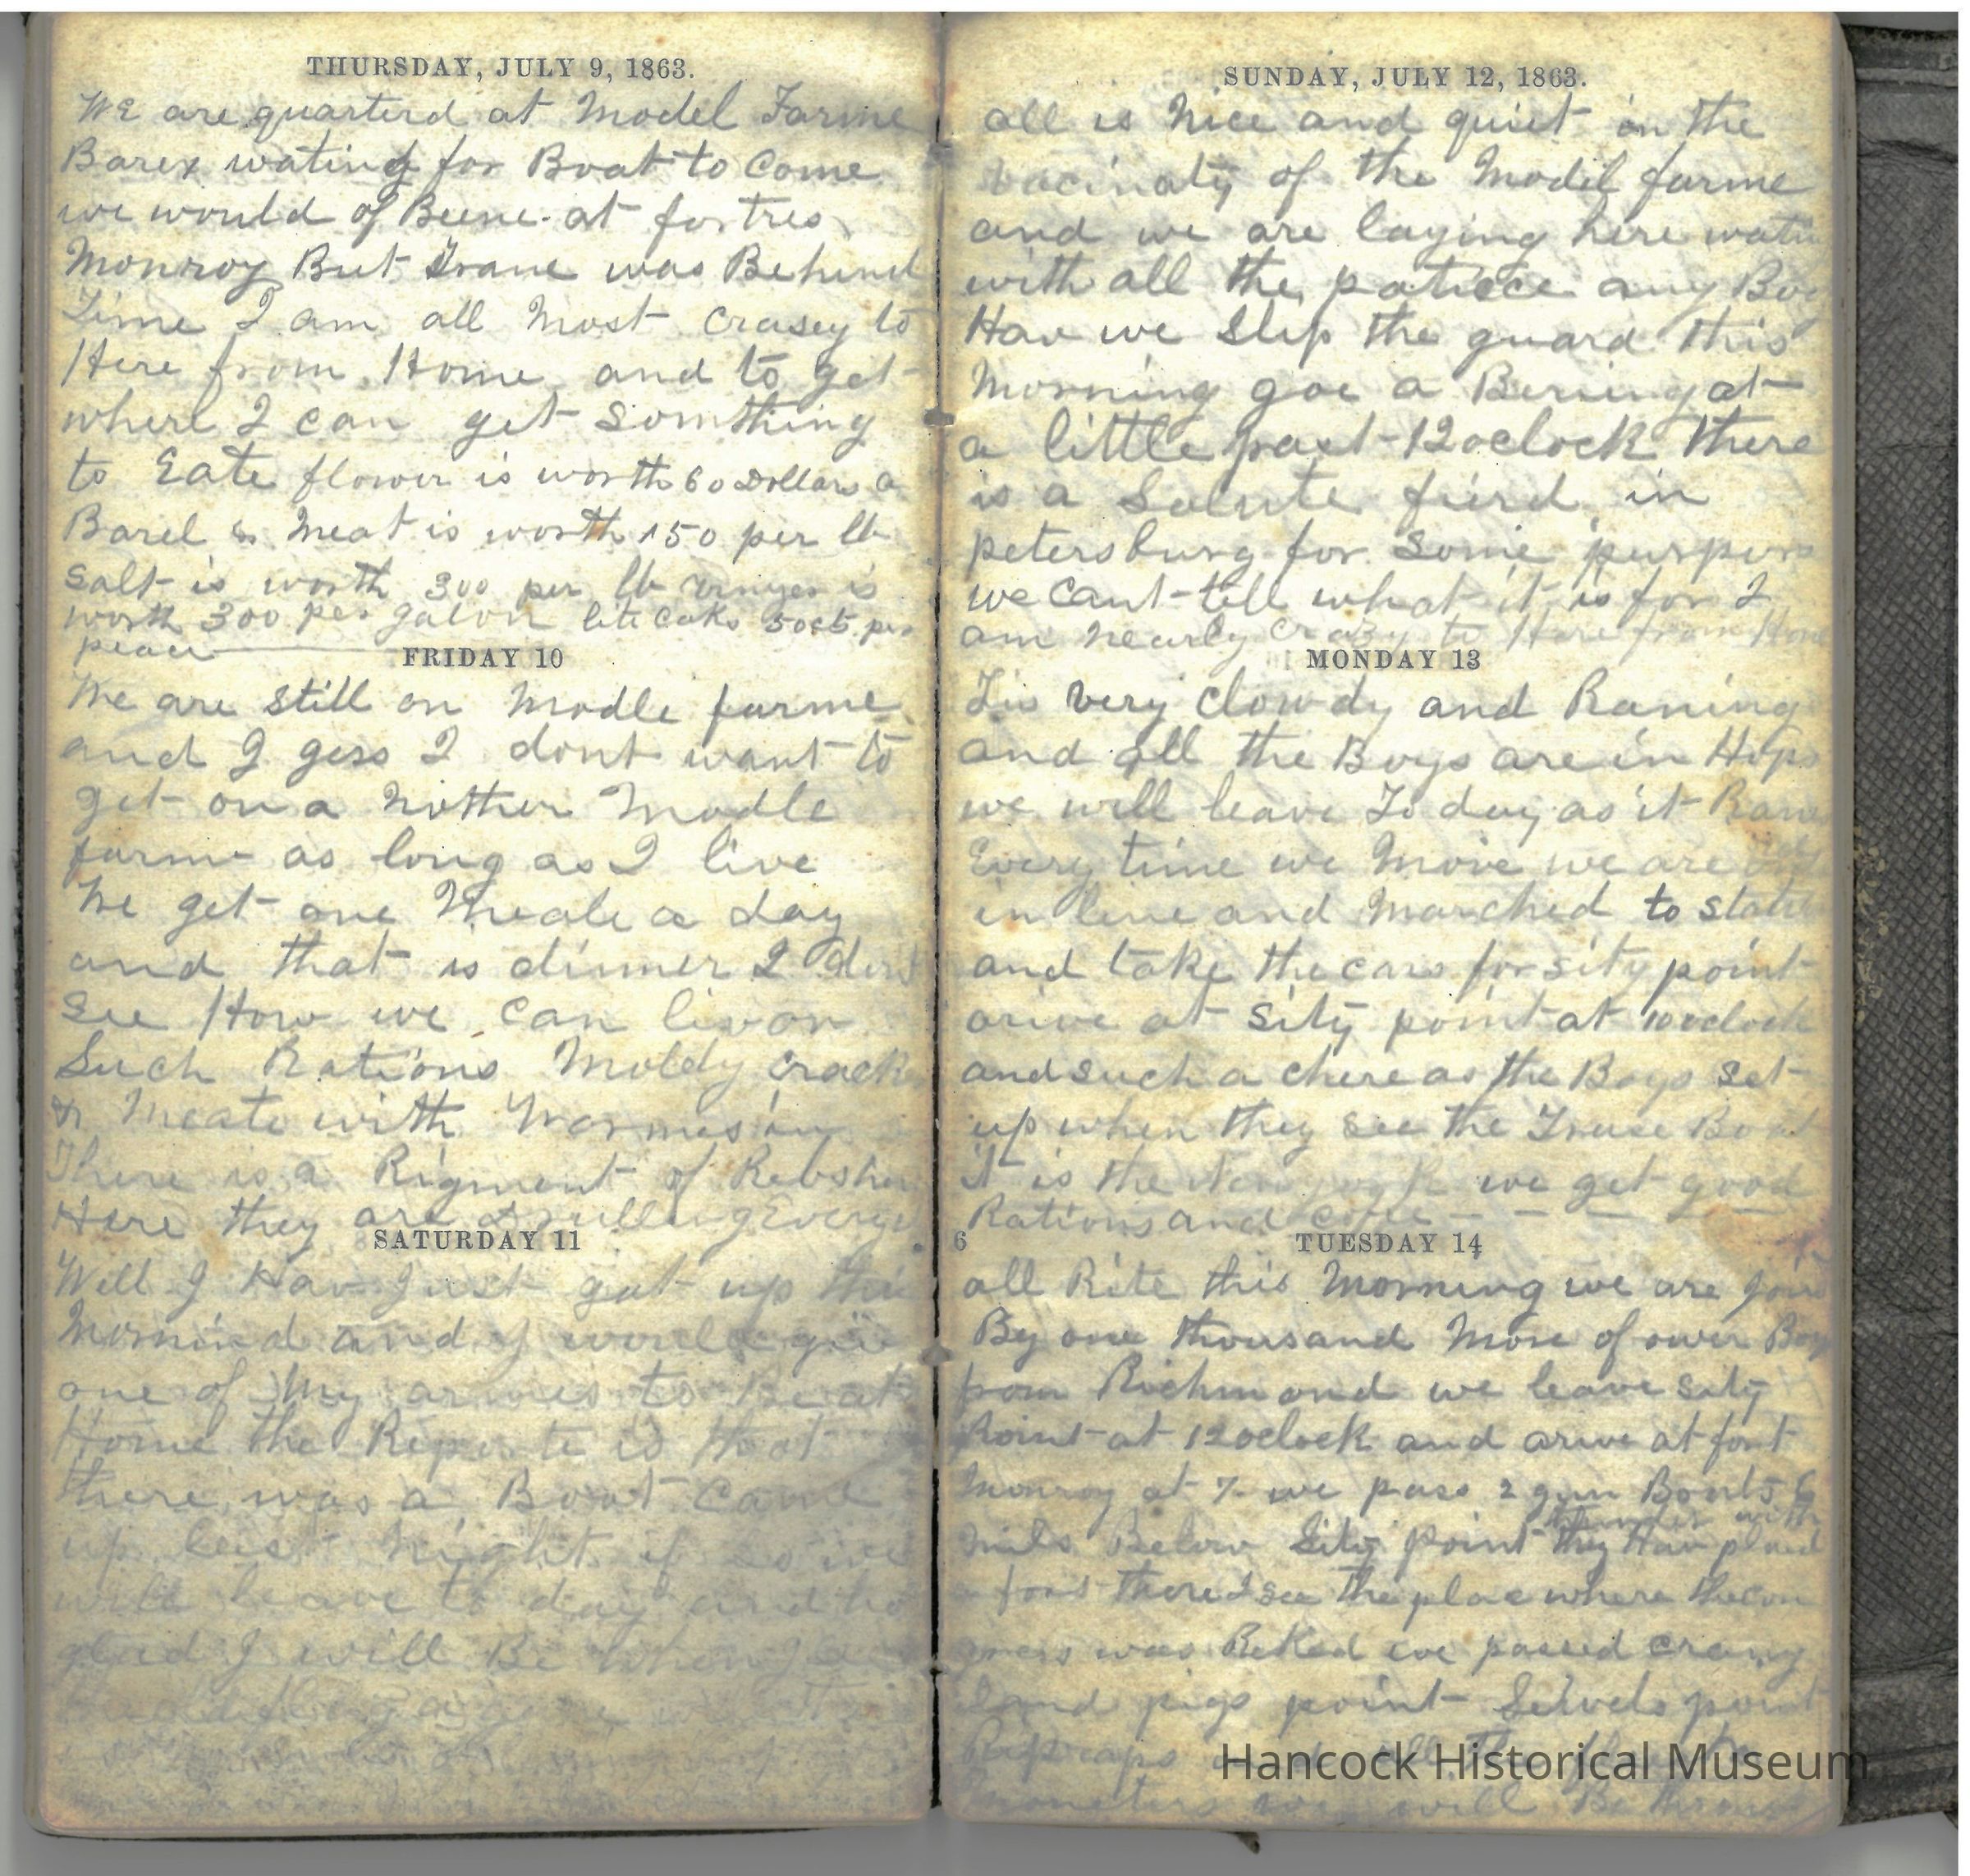 THURSDAY, JULY 9, 1863.
We are quarterd at Model Farme
Barex wating for Boat to Come
we would of Beene at fortres
Monroy But Trane was Behind
Time I am all Most Crasey to
Here from Home and to get
where I can get Somthing
to Eate flower is worth 60 Dollars a
Barel & Meat is worth 150 per lb
Salt is worth 300 per lb is
worth 300 per galon lite Caks 50cts per
peace
FRIDAY 10
We are still on Modle farme
and I gess I dont want to
get on a Nother Modle
farme as long as I live
We get one Meale a day
and that is dinner I dont
see How we can liv on
Such Rations Moldy crack
& Meate with Wormes in
There is a Rigment of Rebs her
Here they are drulling Every
SATURDAY 11
Will I Hav Just gut up this
Mornind and I would giv
one of My armes to Be at
Home the Reporte is that
there was a Boat Came
up last Night if so we
will leave to day and ho
glad I will Be when I
SUNDAY, JULY 12, 1863.
all is Nice and quiet in the
vacinaty of the Model farme
and we are laying here watin
with all the patiece any Boy
Hav we Slip the guard this
Morning goe a Bering at
a little past 12 oclock there
is a Salute fierd in
petersburg for Some purpus
we Cant tell what it is for I
am Nearly Crazy to Here from Home
MONDAY 13
Tis very Clowdy and Raning
and all the Boys are in Hops
we will leave To day as it Rans
Every time we Move we are
in line and Marched to statin
and take the cars for sity point
arive at Sity point at 10 oclock
and such a chere as the Boys set
up when they see the Truse Boat
it is the New york we get good
Rations and coffe
6
TUESDAY 14
all Rite this Morning we are Joind
By one thousand More of ower Boys
from Richmond we leave sity
Point at 12 oclock and arive at fort
Monroy at 7 we pass 2 gun Boats 6
mils Below Sity point they Hav
a fort there I see the place where the con
gress was we passed crany
Iland pigs point Sewels point
Ripraps
will Be
Hancock Historical Museum